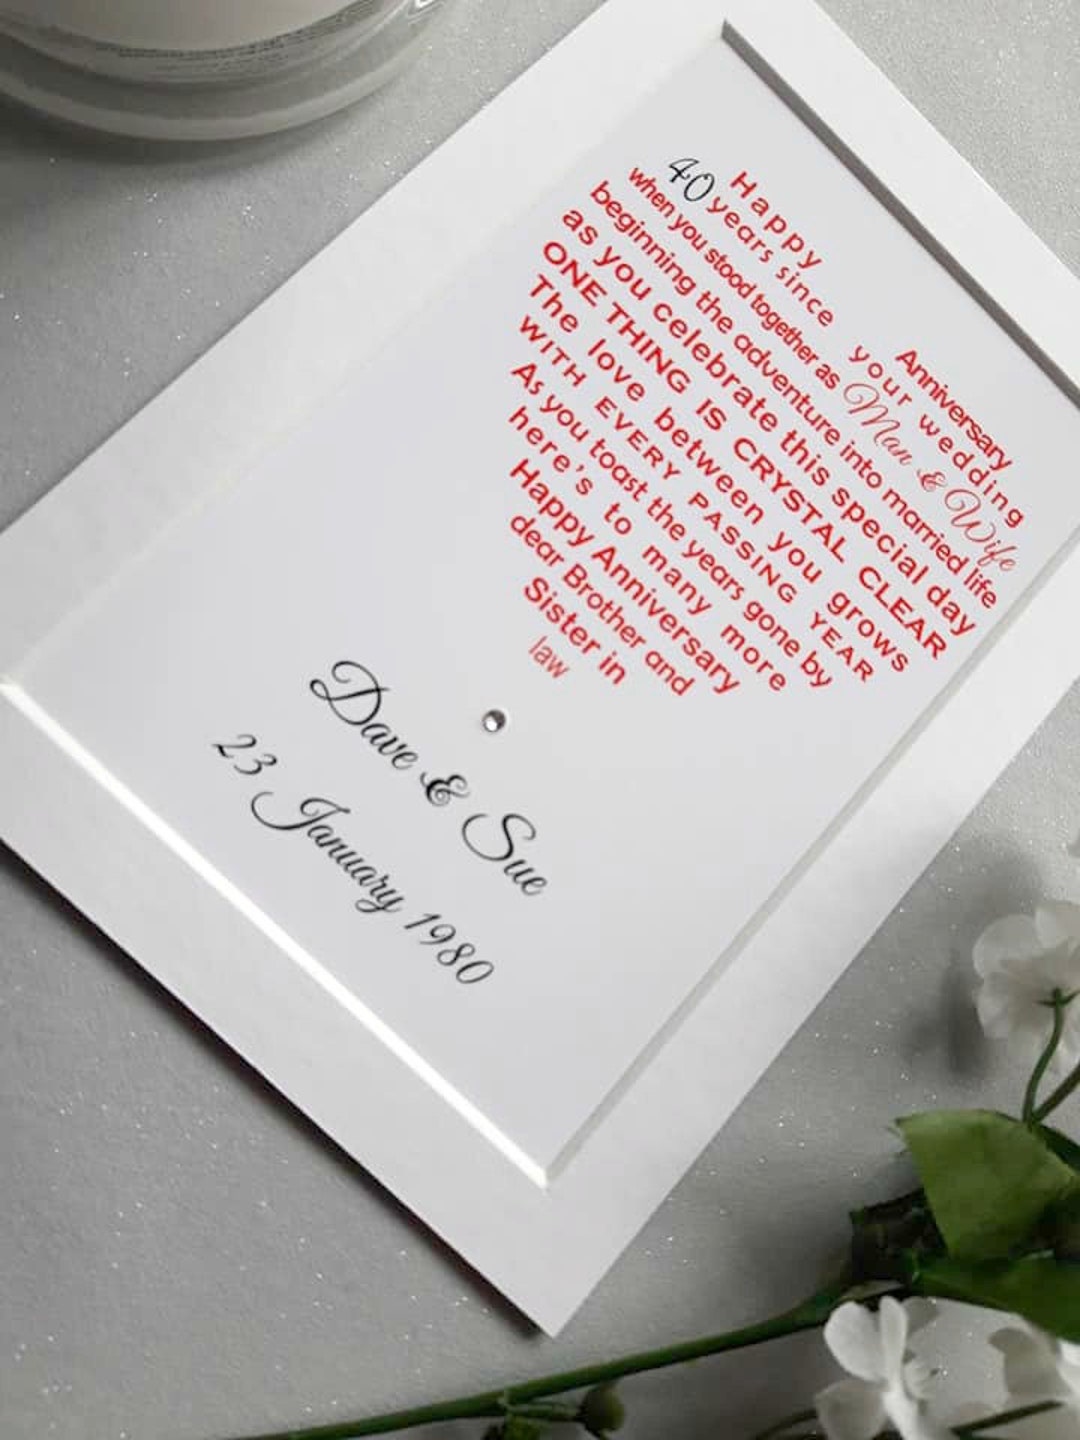 Happy Anniversary
40 years since your wedding
when you stood together as Man & Wife
beginning the adventure into married life
as you celebrate this special day
ONE THING IS CRYSTAL CLEAR
The love between you grows
WITH EVERY PASSING YEAR
As you toast the years gone by
here's to many more
Happy Anniversary
dear Brother and
Sister in
law
Dave & Sue
23 January 1980